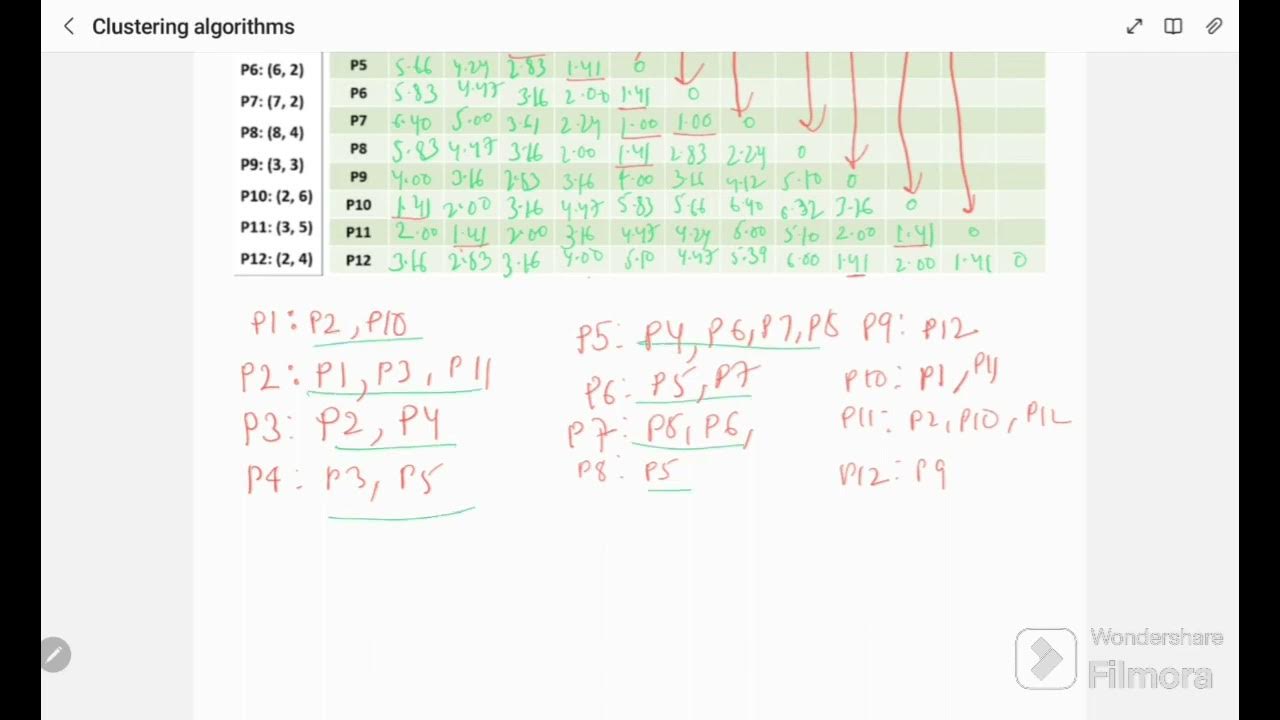 Clustering algorithms
P5 5.66 4.24 2.83 1.41 0
P6: (6, 2)
P6 5.83 4.47 3.16 2.00 1.41 0
P7: (7, 2)
P7 6.40 5.00 3.61 2.24 1.00 1.00 0
P8: (8, 4)
P8 5.83 4.47 3.16 2.00 1.41 2.83 2.24 0
P9: (3, 3)
P9 4.00 3.16 2.83 3.16 4.00 3.16 4.12 5.10 0
P10: (2, 6)
P10 1.41 2.00 3.16 4.47 5.83 5.66 6.40 6.32 3.16 0
P11: (3, 5)
P11 2.00 1.41 2.00 3.16 4.47 4.24 5.00 5.10 2.00 1.41 0
P12: (2, 4)
P12 3.16 2.83 3.16 4.00 5.10 4.47 5.39 6.00 1.41 2.00 1.41 0
P1: P2, P10
P2: P1, P3, P11
P3: P2, P4
P4: P3, P5
P5: P4, P6, P7, P8
P6: P5, P7
P7: P5, P6,
P8: P5
P9: P12
P10: P1, P11
P11: P2, P10, P12
P12: P9
Wondershare
Filmora